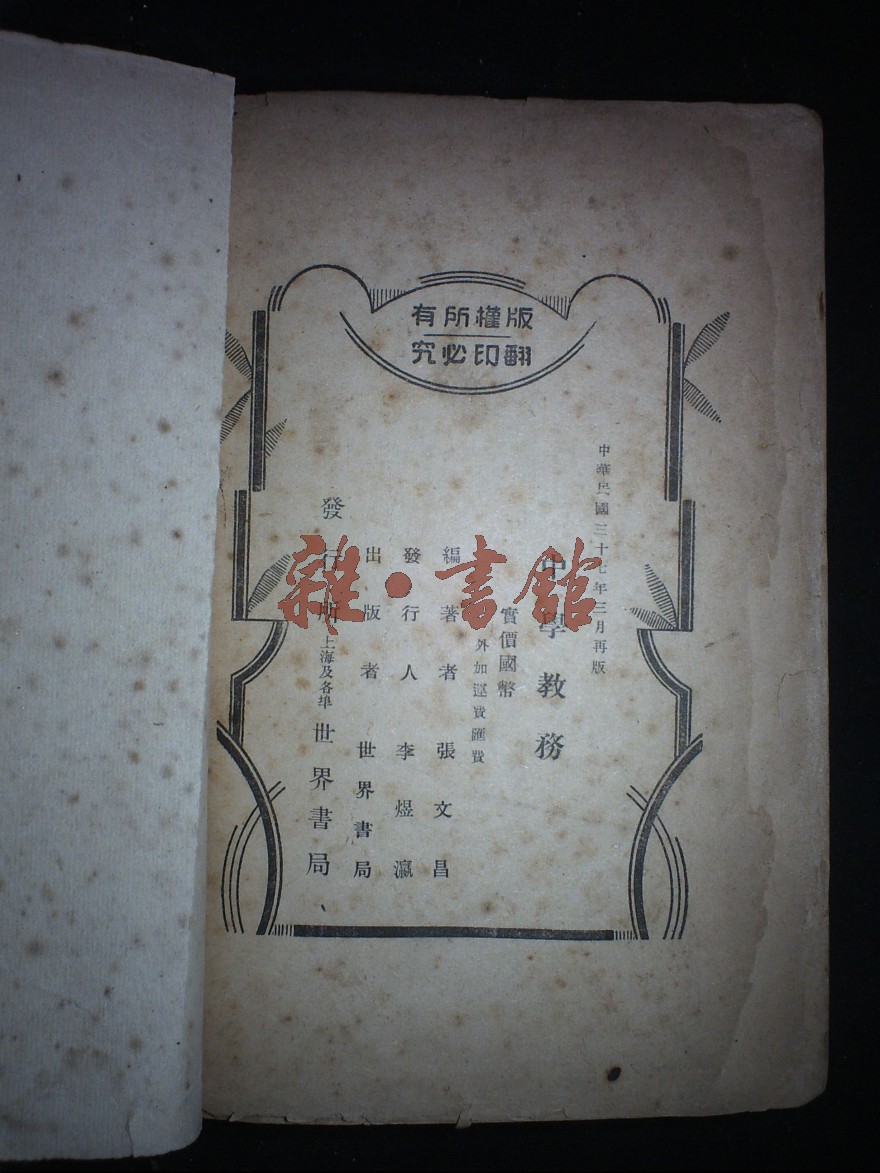 版權所有
翻印必究
中華民國三十七年三月再版
中學教務
實價國幣
外加運費匯費
編著者 張文昌
發行人 李煜瀛
出版者 世界書局
發行所 上海及各埠 世界書局
雜·書館